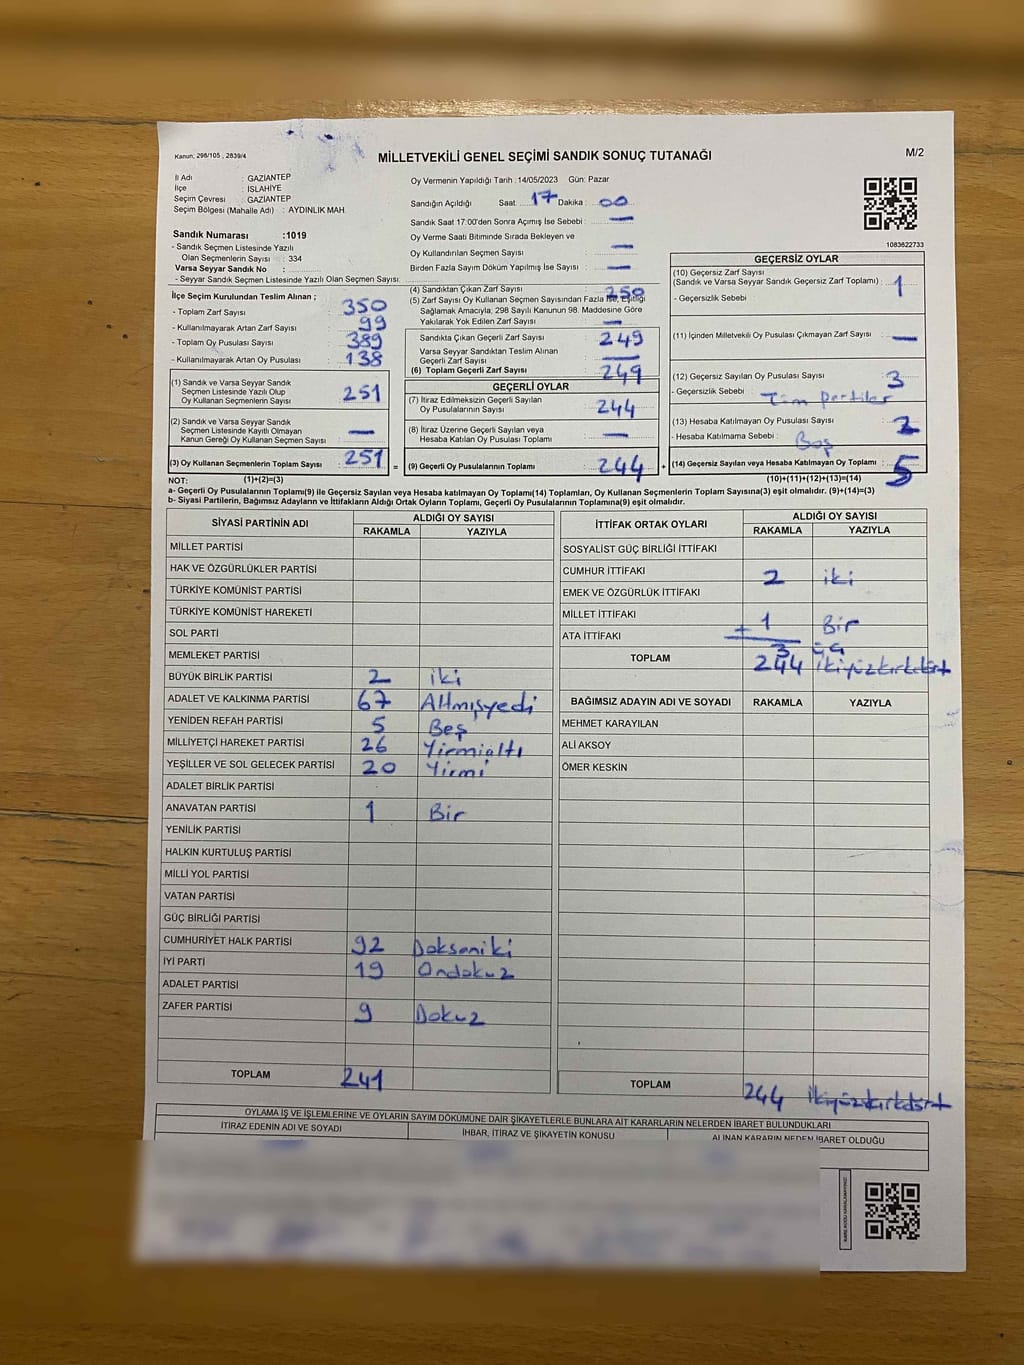 Kanun; 298/105 , 2839/4
MİLLETVEKİLİ GENEL SEÇİMİ SANDIK SONUÇ TUTANAĞI
M/2
İl Adı : GAZİANTEP
İlçe : İSLAHİYE
Seçim Çevresi : GAZİANTEP
Seçim Bölgesi (Mahalle Adı) : AYDINLIK MAH.
Sandık Numarası :1019
- Sandık Seçmen Listesinde Yazılı
Olan Seçmenlerin Sayısı : 334
Varsa Seyyar Sandık No :
- Seyyar Sandık Seçmen Listesinde Yazılı Olan Seçmen Sayısı:
Oy Vermenin Yapıldığı Tarih :14/05/2023 Gün: Pazar
Sandığın Açıldığı Saat 17 Dakika : 00
Sandık Saat 17:00'den Sonra Açımış İse Sebebi : —
Oy Verme Saati Bitiminde Sırada Bekleyen ve
Oy Kullandırılan Seçmen Sayısı : —
Birden Fazla Sayım Döküm Yapılmış İse Sayısı : —
1083622733
İlçe Seçim Kurulundan Teslim Alınan ;
- Toplam Zarf Sayısı : 350
- Kullanılmayarak Artan Zarf Sayısı : 99
- Toplam Oy Pusulası Sayısı : 389
- Kullanılmayarak Artan Oy Pusulası : 138
(1) Sandık ve Varsa Seyyar Sandık
Seçmen Listesinde Yazılı Olup
Oy Kullanan Seçmenlerin Sayısı 251
(2) Sandık ve Varsa Seyyar Sandık
Seçmen Listesinde Kayıtlı Olmayan
Kanun Gereği Oy Kullanan Seçmen Sayısı —
(3) Oy Kullanan Seçmenlerin Toplam Sayısı : 251 =
(4) Sandıktan Çıkan Zarf Sayısı : 250
(5) Zarf Sayısı Oy Kullanan Seçmen Sayısından Fazla İse, Eşitliği
Sağlamak Amacıyla; 298 Sayılı Kanunun 98. Maddesine Göre
Yakılarak Yok Edilen Zarf Sayısı : —
Sandıkta Çıkan Geçerli Zarf Sayısı : 249
Varsa Seyyar Sandıktan Teslim Alınan
Geçerli Zarf Sayısı : —
(6) Toplam Geçerli Zarf Sayısı : 249
GEÇERLİ OYLAR
(7) İtiraz Edilmeksizin Geçerli Sayılan
Oy Pusulalarının Sayısı : 244
(8) İtiraz Üzerine Geçerli Sayılan veya
Hesaba Katılan Oy Pusulası Toplamı : —
(9) Geçerli Oy Pusulalarının Toplamı : 244 +
GEÇERSİZ OYLAR
(10) Geçersiz Zarf Sayısı
(Sandık ve Varsa Seyyar Sandık Geçersiz Zarf Toplamı) : 1
- Geçersizlik Sebebi :
(11) İçinden Milletvekili Oy Pusulası Çıkmayan Zarf Sayısı : —
(12) Geçersiz Sayılan Oy Pusulası Sayısı : 3
- Geçersizlik Sebebi : Tüm partiler
(13) Hesaba Katılmayan Oy Pusulası Sayısı : 2
- Hesaba Katılmama Sebebi : Boş
(14) Geçersiz Sayılan veya Hesaba Katılmayan Oy Toplamı : 5
NOT: (1)+(2)=(3) (10)+(11)+(12)+(13)=(14)
a- Geçerli Oy Pusulalarının Toplamı(9) ile Geçersiz Sayılan veya Hesaba katılmayan Oy Toplamı(14) Toplamları, Oy Kullanan Seçmenlerin Toplam Sayısına(3) eşit olmalıdır. (9)+(14)=(3)
b- Siyasi Partilerin, Bağımsız Adayların ve İttifakların Aldığı Ortak Oyların Toplamı, Geçerli Oy Pusulalarının Toplamına(9) eşit olmalıdır.
SİYASİ PARTİNİN ADI ALDIĞI OY SAYISI
RAKAMLA YAZIYLA
MİLLET PARTİSİ
HAK VE ÖZGÜRLÜKLER PARTİSİ
TÜRKİYE KOMÜNİST PARTİSİ
TÜRKİYE KOMÜNİST HAREKETİ
SOL PARTİ
MEMLEKET PARTİSİ
BÜYÜK BİRLİK PARTİSİ 2 iki
ADALET VE KALKINMA PARTİSİ 67 Altmışyedi
YENİDEN REFAH PARTİSİ 5 Beş
MİLLİYETÇİ HAREKET PARTİSİ 26 Yirmialtı
YEŞİLLER VE SOL GELECEK PARTİSİ 20 Yirmi
ADALET BİRLİK PARTİSİ
ANAVATAN PARTİSİ 1 Bir
YENİLİK PARTİSİ
HALKIN KURTULUŞ PARTİSİ
MİLLİ YOL PARTİSİ
VATAN PARTİSİ
GÜÇ BİRLİĞİ PARTİSİ
CUMHURİYET HALK PARTİSİ 92 Doksaniki
İYİ PARTİ 19 Ondokuz
ADALET PARTİSİ
ZAFER PARTİSİ 9 Dokuz
TOPLAM 241
İTTİFAK ORTAK OYLARI ALDIĞI OY SAYISI
RAKAMLA YAZIYLA
SOSYALİST GÜÇ BİRLİĞİ İTTİFAKI
CUMHUR İTTİFAKI 2 iki
EMEK VE ÖZGÜRLÜK İTTİFAKI
MİLLET İTTİFAKI 1 Bir
ATA İTTİFAKI +
3 üç
TOPLAM 244 ikiyüzkırkdört
BAĞIMSIZ ADAYIN ADI VE SOYADI RAKAMLA YAZIYLA
MEHMET KARAYILAN
ALİ AKSOY
ÖMER KESKİN
TOPLAM 244 ikiyüzkırkdört
OYLAMA İŞ VE İŞLEMLERİNE VE OYLARIN SAYIM DÖKÜMÜNE DAİR ŞİKAYETLERLE BUNLARA AİT KARARLARIN NELERDEN İBARET BULUNDUKLARI
İTİRAZ EDENİN ADI VE SOYADI İHBAR, İTİRAZ VE ŞİKAYETİN KONUSU ALINAN KARARIN NEDEN İBARET OLDUĞU